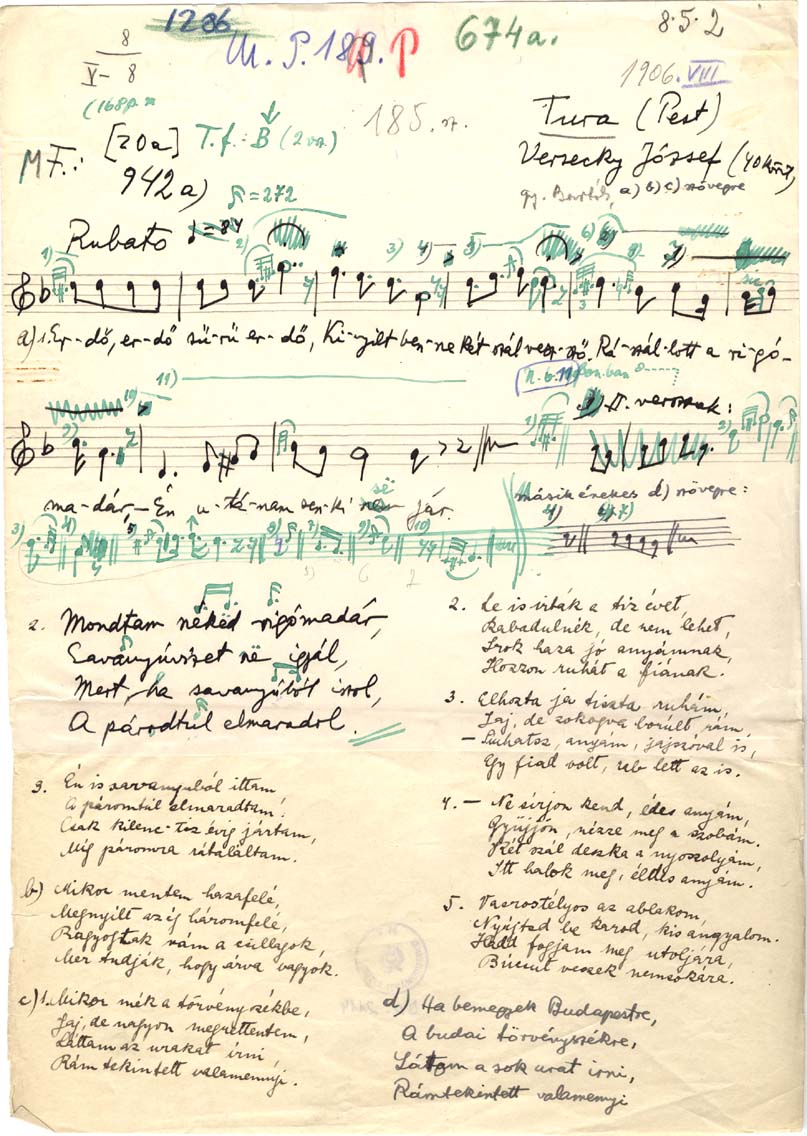 1206
8
V- 8
(168p.
M. P. 189. P
674a.
8.5.2
1906. VIII
185.
[20a] T.f.: B
M F.:
942a)
= 272
Tura (Pest)
Versecky József (40
gy. Bartók, a) b) c) szövegre
Rubato = 84
a) 1. Er-dő, er-dő sű-rű er-dő, Ki-nyilt ben-ne két szál vesz-sző. Rá-szál-lott a ri-gó-
11)
II. versszak:
ma-dár, Én u-tá-nam sen-ki së jár.
másik énekes d) szövegre:
2. Mondtam nëkëd rigómadár,
Savanyúvizet në igyál,
Mert, ha savanyúból iszol,
A párodtul elmaradol.
3. Én is savanyuból ittam
A páromtúl elmaradtam!
Csak kilenc-tiz évig jártam,
Mig páromra rátaláltam.
b) Mikor mentem hazafelé,
Megnyilt az ég háromfelé,
Ragyogtak rám a csillagok,
Mer tudják, hogy árva vagyok.
c) 1. Mikor mék a törvényszékbe,
Jaj, de nagyon megrettentem,
Láttam az urakat irni,
Rám tekintett valamennyi.
2. Le is irták a tiz évet,
Szabadulnék, de nem lehet,
Irok haza jó anyámnak,
Hozzon ruhát a fiának.
3. Elhozta ja tiszta ruhám,
Jaj, de zokogva borúlt rám,
anyám, jajszóval is,
Egy fiad volt, rab lett az is.
4. - Ne sirjon kend, édes anyám,
Gyüjjön, nézze meg a szobám.
Két szál deszka a nyoszolyám,
Itt halok meg, édes anyám.
5. Vasrostélyos az ablakom,
Nyújtsd be karod, kis angyalom.
Hadd fogjam meg utoljára,
Búcsut veszek nemsokára.
d) Ha bemegyek Budapestre,
A budai törvényszékre,
Látom a sok urat irni,
Rám tekintett valamennyi